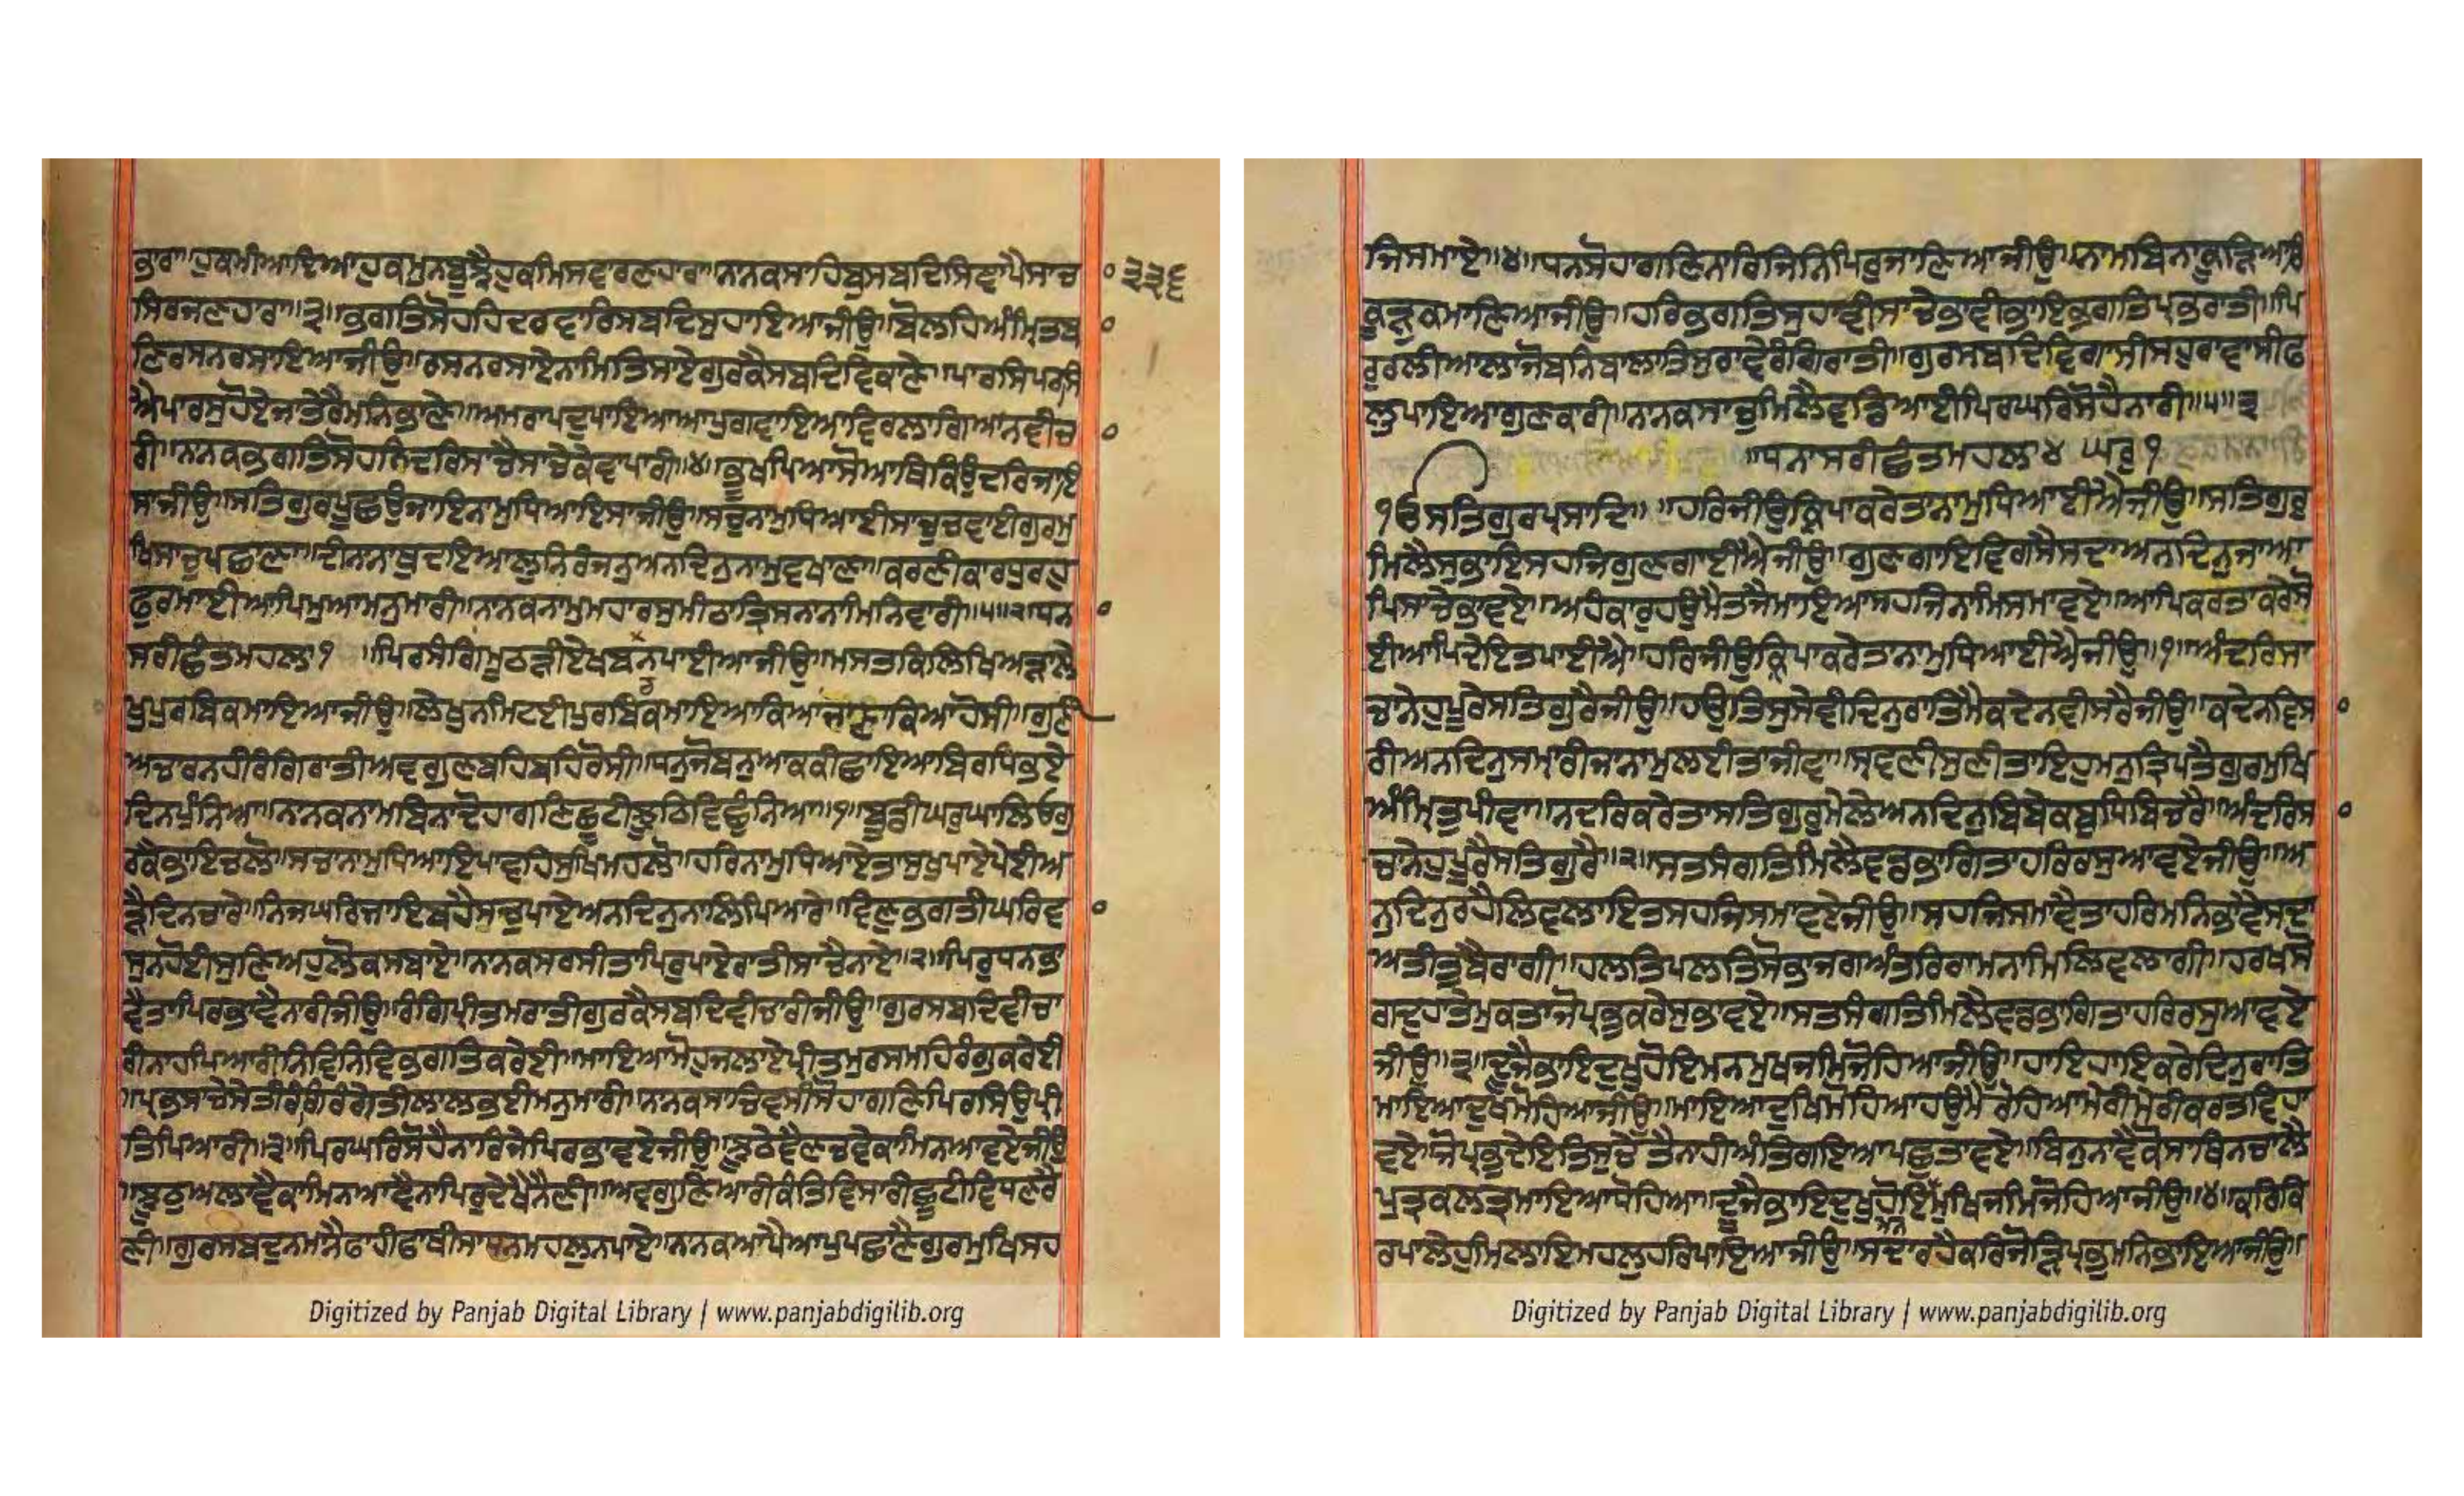 ਭਾਰਾ॥ਹੁਕਮੀਆਇਆਹੁਕਮੁਨਬੂਝੈਹੁਕਮਿਸਵਾਰਣਹਾਰਾ॥ਨਾਨਕਸਾਹਿਬੁਸਬਦਿਸਿਞਾਪੈਸਾਚਾ ੩੩੬
ਸਿਰਜਣਹਾਰਾ॥੩॥ਭਗਤਿਸੋਹਹਿਦਰਵਾਰਿਸਬਦਿਸੁਹਾਇਆਜੀਉ॥ਬੋਲਹਿਅੰਮ੍ਰਿਤਬਾ
ਣਿਰਸਨਰਸਾਇਆਜੀਉ॥ਰਸਨਰਸਾਏਨਾਮਿਤਿਸਾਏਗੁਰਕੈਸਬਦਿਵਿਕਾਣੇ॥ਪਾਰਸਿਪਰਸਿ
ਐਪਾਰਸੁਹੋਏਜਾਤੇਰੈਮਨਿਭਾਣੇ॥ਅਮਰਾਪਦੁਪਾਇਆਆਪੁਗਵਾਇਆਵਿਰਲਾਗਿਆਨਵੀਚਾ
ਰੀ॥ਨਾਨਕਭਗਤਿਸੋਹਨਿਦਰਿਸਾਚੈਸਾਚੇਕੇਵਾਪਾਰੀ॥੪॥ਭੂਖਪਿਆਸੋਆਥਿਕਿਉਦਰਿਜਾਇ
ਸਾਜੀਉ॥ਸਤਿਗੁਰਪੂਛਉਜਾਇਨਾਮੁਧਿਆਇਸਾਜੀਉ॥ਸਚੁਨਾਮੁਧਿਆਈਸਾਚੁਚਵਾਈਗੁਰਮੁ
ਖਿਸਾਚੁਪਛਾਣਾ॥ਦੀਨਾਨਾਥੁਦਇਆਲੁਨਿਰੰਜਨੁਅਨਦਿਨੁਨਾਮੁਵਖਾਣਾ॥ਕਰਣੀਕਾਰਧੁਰਹੁ
ਫੁਰਮਾਈਆਪਿਮੁਆਮਨੁਮਾਰੀ॥ਨਾਨਕਨਾਮੁਮਹਾਰਸੁਮੀਠਾਤ੍ਰਿਸਨਾਨਾਮਿਨਿਵਾਰੀ॥੫॥੨॥ਧਨਾ
ਸਰੀਛੰਤਮਹਲਾ੧ ॥ਪਿਰਸੰਗਿਮੂਠੜੀਏਖਬਰਿਨਪਾਈਆਜੀਉ॥ਮਸਤਕਿਲਿਖਿਅੜਾਲੇ
ਖੁਪੁਰਬਿਕਮਾਇਆਜੀਉ॥ਲੇਖੁਨਮਿਟਈਪੁਰਬਿਕਮਾਇਆਕਿਆਜਾਣਾਕਿਆਹੋਸੀ॥ਗੁਣੀ
ਅਚਾਰਨਹੀਰੰਗਿਰਾਤੀਅਵਗੁਣਬਹਿਬਹਿਰੋਸੀ॥ਧਨੁਜੋਬਨੁਆਕਕੀਛਾਇਆਬਿਰਧਿਭਏ
ਦਿਨਪੁੰਨਿਆ॥ਨਾਨਕਨਾਮਬਿਨਾਦੋਹਾਗਣਿਛੂਟੀਝੂਠਿਵਿਛੁੰਨਿਆ॥੧॥ਬੂਡੀਘਰੁਘਾਲਿਓਗੁ
ਰਕੈਭਾਇਚਲੋ॥ਸਾਚਾਨਾਮੁਧਿਆਇਪਾਵਹਿਸੁਖਿਮਹਲੋ॥ਹਰਿਨਾਮੁਧਿਆਏਤਾਸੁਖੁਪਾਏਪੇਈਅ
ੜੈਦਿਨਚਾਰੇ॥ਨਿਜਘਰਿਜਾਇਬਹੈਸਚੁਪਾਏਅਨਦਿਨੁਨਾਲਿਪਿਆਰੇ॥ਵਿਣੁਭਗਤੀਘਰਿਵਾ
ਸੁਨਹੋਈਸੁਣਿਅਹੁਲੋਕਸਬਾਏ॥ਨਾਨਕਸਰਸੀਤਾਪਿਰੁਪਾਏਰਾਤੀਸਾਚੈਨਾਏ॥੨॥ਪਿਰੁਧਨਭਾ
ਵੈਤਾਪਿਰਭਾਵੈਨਾਰੀਜੀਉ॥ਰੰਗਿਪ੍ਰੀਤਮਰਾਤੀਗੁਰਕੈਸਬਦਿਵੀਚਾਰੀਜੀਉ॥ਗੁਰਸਬਦਿਵੀਚਾ
ਰੀਨਾਹਪਿਆਰੀਨਿਵਿਨਿਵਿਭਗਤਿਕਰੇਈ॥ਮਾਇਆਮੋਹੁਜਲਾਏਪ੍ਰੀਤਮੁਰਸਮਹਿਰੰਗੁਕਰੇਈ
॥ਪ੍ਰਭਸਾਚੇਸੇਤੀਰੰਗਿਰੰਗੇਤੀਲਾਲਭਈਮਨੁਮਾਰੀ॥ਨਾਨਕਸਾਚਿਵਸੀਸੋਹਾਗਣਿਪਿਰਸਿਉਪ੍ਰੀ
ਤਿਪਿਆਰੀ॥੩॥ਪਿਰਘਰਿਸੋਹੈਨਾਰਿਜੇਪਿਰਭਾਵਏਜੀਉ॥ਝੂਠੇਵੈਣਚਵੇਕਾਮਿਨਆਵਏਜੀਉ
॥ਝੂਠੁਅਲਾਵੈਕਾਮਿਨਆਵੈਨਾਪਿਰੁਦੇਖੈਨੈਣੀ॥ਅਵਗੁਣਿਆਰੀਕੰਤਿਵਿਸਾਰੀਛੂਟੀਵਿਧਣਰੈ
ਣੀ॥ਗੁਰਸਬਦੁਨਮਾਨੈਫਾਹੀਫਾਥੀਸਾਧਨਮਹਲੁਨਪਾਏ॥ਨਾਨਕਆਪੈਆਪੁਪਛਾਣੈਗੁਰਮੁਖਿਸਹ
ਜਿਸਮਾਏ॥੪॥ਧਨਸੋਹਾਗਣਿਨਾਰਿਜਿਨਿਪਿਰੁਜਾਣਿਆਜੀਉ॥ਨਾਮਬਿਨਾਕੂੜਿਆਰਿ
ਕੂੜੁਕਮਾਣਿਆਜੀਉ॥ਹਰਿਭਗਤਿਸੁਹਾਵੀਸਾਚੇਭਾਵੀਭਾਇਭਗਤਿਪ੍ਰਭਰਾਤੀ॥ਪਿ
ਰੁਰਲੀਆਲਾਜੋਬਨਿਬਾਲਾਤਿਸੁਰਾਵੇਰੰਗਿਰਾਤੀ॥ਗੁਰਸਬਦਿਵਿਗਾਸੀਸਹੁਰਾਵਾਸੀਫ
ਲੁਪਾਇਆਗੁਣਕਾਰੀ॥ਨਾਨਕਸਾਚੁਮਿਲੈਵਡਿਆਈਪਿਰਘਰਿਸੋਹੈਨਾਰੀ॥੫॥੩
॥ਧਨਾਸਰੀਛੰਤਮਹਲਾ੪ ਘਰੁ੧
ੴਸਤਿਗੁਰਪ੍ਰਸਾਦਿ॥ ॥ਹਰਿਜੀਉਕ੍ਰਿਪਾਕਰੇਤਾਨਾਮੁਧਿਆਈਐਜੀਉ॥ਸਤਿਗੁਰੁ
ਮਿਲੈਸੁਭਾਇਸਹਜਿਗੁਣਗਾਈਐਜੀਉ॥ਗੁਣਗਾਇਵਿਗਸੈਸਦਾਅਨਦਿਨੁਜਾਆ
ਪਿਸਾਚੇਭਾਵਏ॥ਅਹੰਕਾਰੁਹਉਮੈਤਜੈਮਾਇਆਸਹਜਿਨਾਮਿਸਮਾਵਏ॥ਆਪਿਕਰਤਾਕਰੇਸੋ
ਈਆਪਿਦੇਇਤਪਾਈਐ॥ਹਰਿਜੀਉਕ੍ਰਿਪਾਕਰੇਤਾਨਾਮੁਧਿਆਈਐਜੀਉ॥੧॥ਅੰਦਰਿਸਾ
ਚਾਨੇਹੁਪੂਰੇਸਤਿਗੁਰੈਜੀਉ॥ਹਉਤਿਸੁਸੇਵੀਦਿਨੁਰਾਤਿਮੈਕਦੇਨਵੀਸਰੈਜੀਉ॥ਕਦੇਨਵਿਸਾ
ਰੀਅਨਦਿਨੁਸਮ੍ਹਾਰੀਜਾਨਾਮੁਲਈਤਾਜੀਵਾ॥ਸ੍ਰਵਣੀਸੁਣੀਤਾਇਹੁਮਨੁਤ੍ਰਿਪਤੈਗੁਰਮੁਖਿ
ਅੰਮ੍ਰਿਤੁਪੀਵਾ॥ਨਦਰਿਕਰੇਤਾਸਤਿਗੁਰੁਮੇਲੇਅਨਦਿਨੁਬਿਬੇਕਬੁਧਿਬਿਚਰੈ॥ਅੰਦਰਿਸਾ
ਚਾਨੇਹੁਪੂਰੈਸਤਿਗੁਰੈ॥੨॥ਸਤਸੰਗਤਿਮਿਲੈਵਡਭਾਗਿਤਾਹਰਿਰਸੁਆਵਏਜੀਉ॥ਅ
ਨੁਦਿਨੁਰਹੈਲਿਵਲਾਇਤਸਹਜਿਸਮਾਵਏਜੀਉ॥ਸਹਜਿਸਮਾਵੈਤਾਹਰਿਮਨਿਭਾਵੈਸਦਾ
ਅਤੀਤੁਬੈਰਾਗੀ॥ਹਲਤਿਪਲਤਿਸੋਭਾਜਗਅੰਤਰਿਰਾਮਨਾਮਿਲਿਵਲਾਗੀ॥ਹਰਖਸੋ
ਗਦੁਹਾਤੇਮੁਕਤਾਜੋਪ੍ਰਭੁਕਰੇਸੁਭਾਵਏ॥ਸਤਸੰਗਤਿਮਿਲੈਵਡਭਾਗਿਤਾਹਰਿਰਸੁਆਵਏ
ਜੀਉ॥੩॥ਦੂਜੈਭਾਇਦੁਖੁਹੋਇਮਨਮੁਖਜਮਿਜੋਹਿਆਜੀਉ॥ਹਾਇਹਾਇਕਰੇਦਿਨੁਰਾਤਿ
ਮਾਇਆਦੁਖਿਮੋਹਿਆਜੀਉ॥ਮਾਇਆਦੁਖਿਮੋਹਿਆਹਉਮੈਰੋਹਿਆਮੇਰੀਮੇਰੀਕਰਤਵਿਹਾ
ਵਏ॥ਜੋਪ੍ਰਭੁਦੇਇਤਿਸੁਚੇਤੈਨਾਹੀਅੰਤਿਗਇਆਪਛੁਤਾਵਏ॥ਬਿਨੁਨਾਵੈਕੋਸਾਥਿਨਚਾਲੈ
ਪੁਤ੍ਰਕਲਤ੍ਰਮਾਇਆਧੋਹਿਆ॥ਦੂਜੈਭਾਇਦੁਖੁਹੋਇਮਨਮੁਖਿਜਮਿਜੋਹਿਆਜੀਉ॥੪॥ਕਰਿਕਿ
ਰਪਾਲੇਹੁਮਿਲਾਇਮਹਲੁਹਰਿਪਾਇਆਜੀਉ॥ਸਦਾਰਹੈਕਰਿਜੋੜਿਪ੍ਰਭੁਮਨਿਭਾਇਆਜੀਉ॥
Digitized by Panjab Digital Library | www.panjabdigilib.org
Digitized by Panjab Digital Library | www.panjabdigilib.org